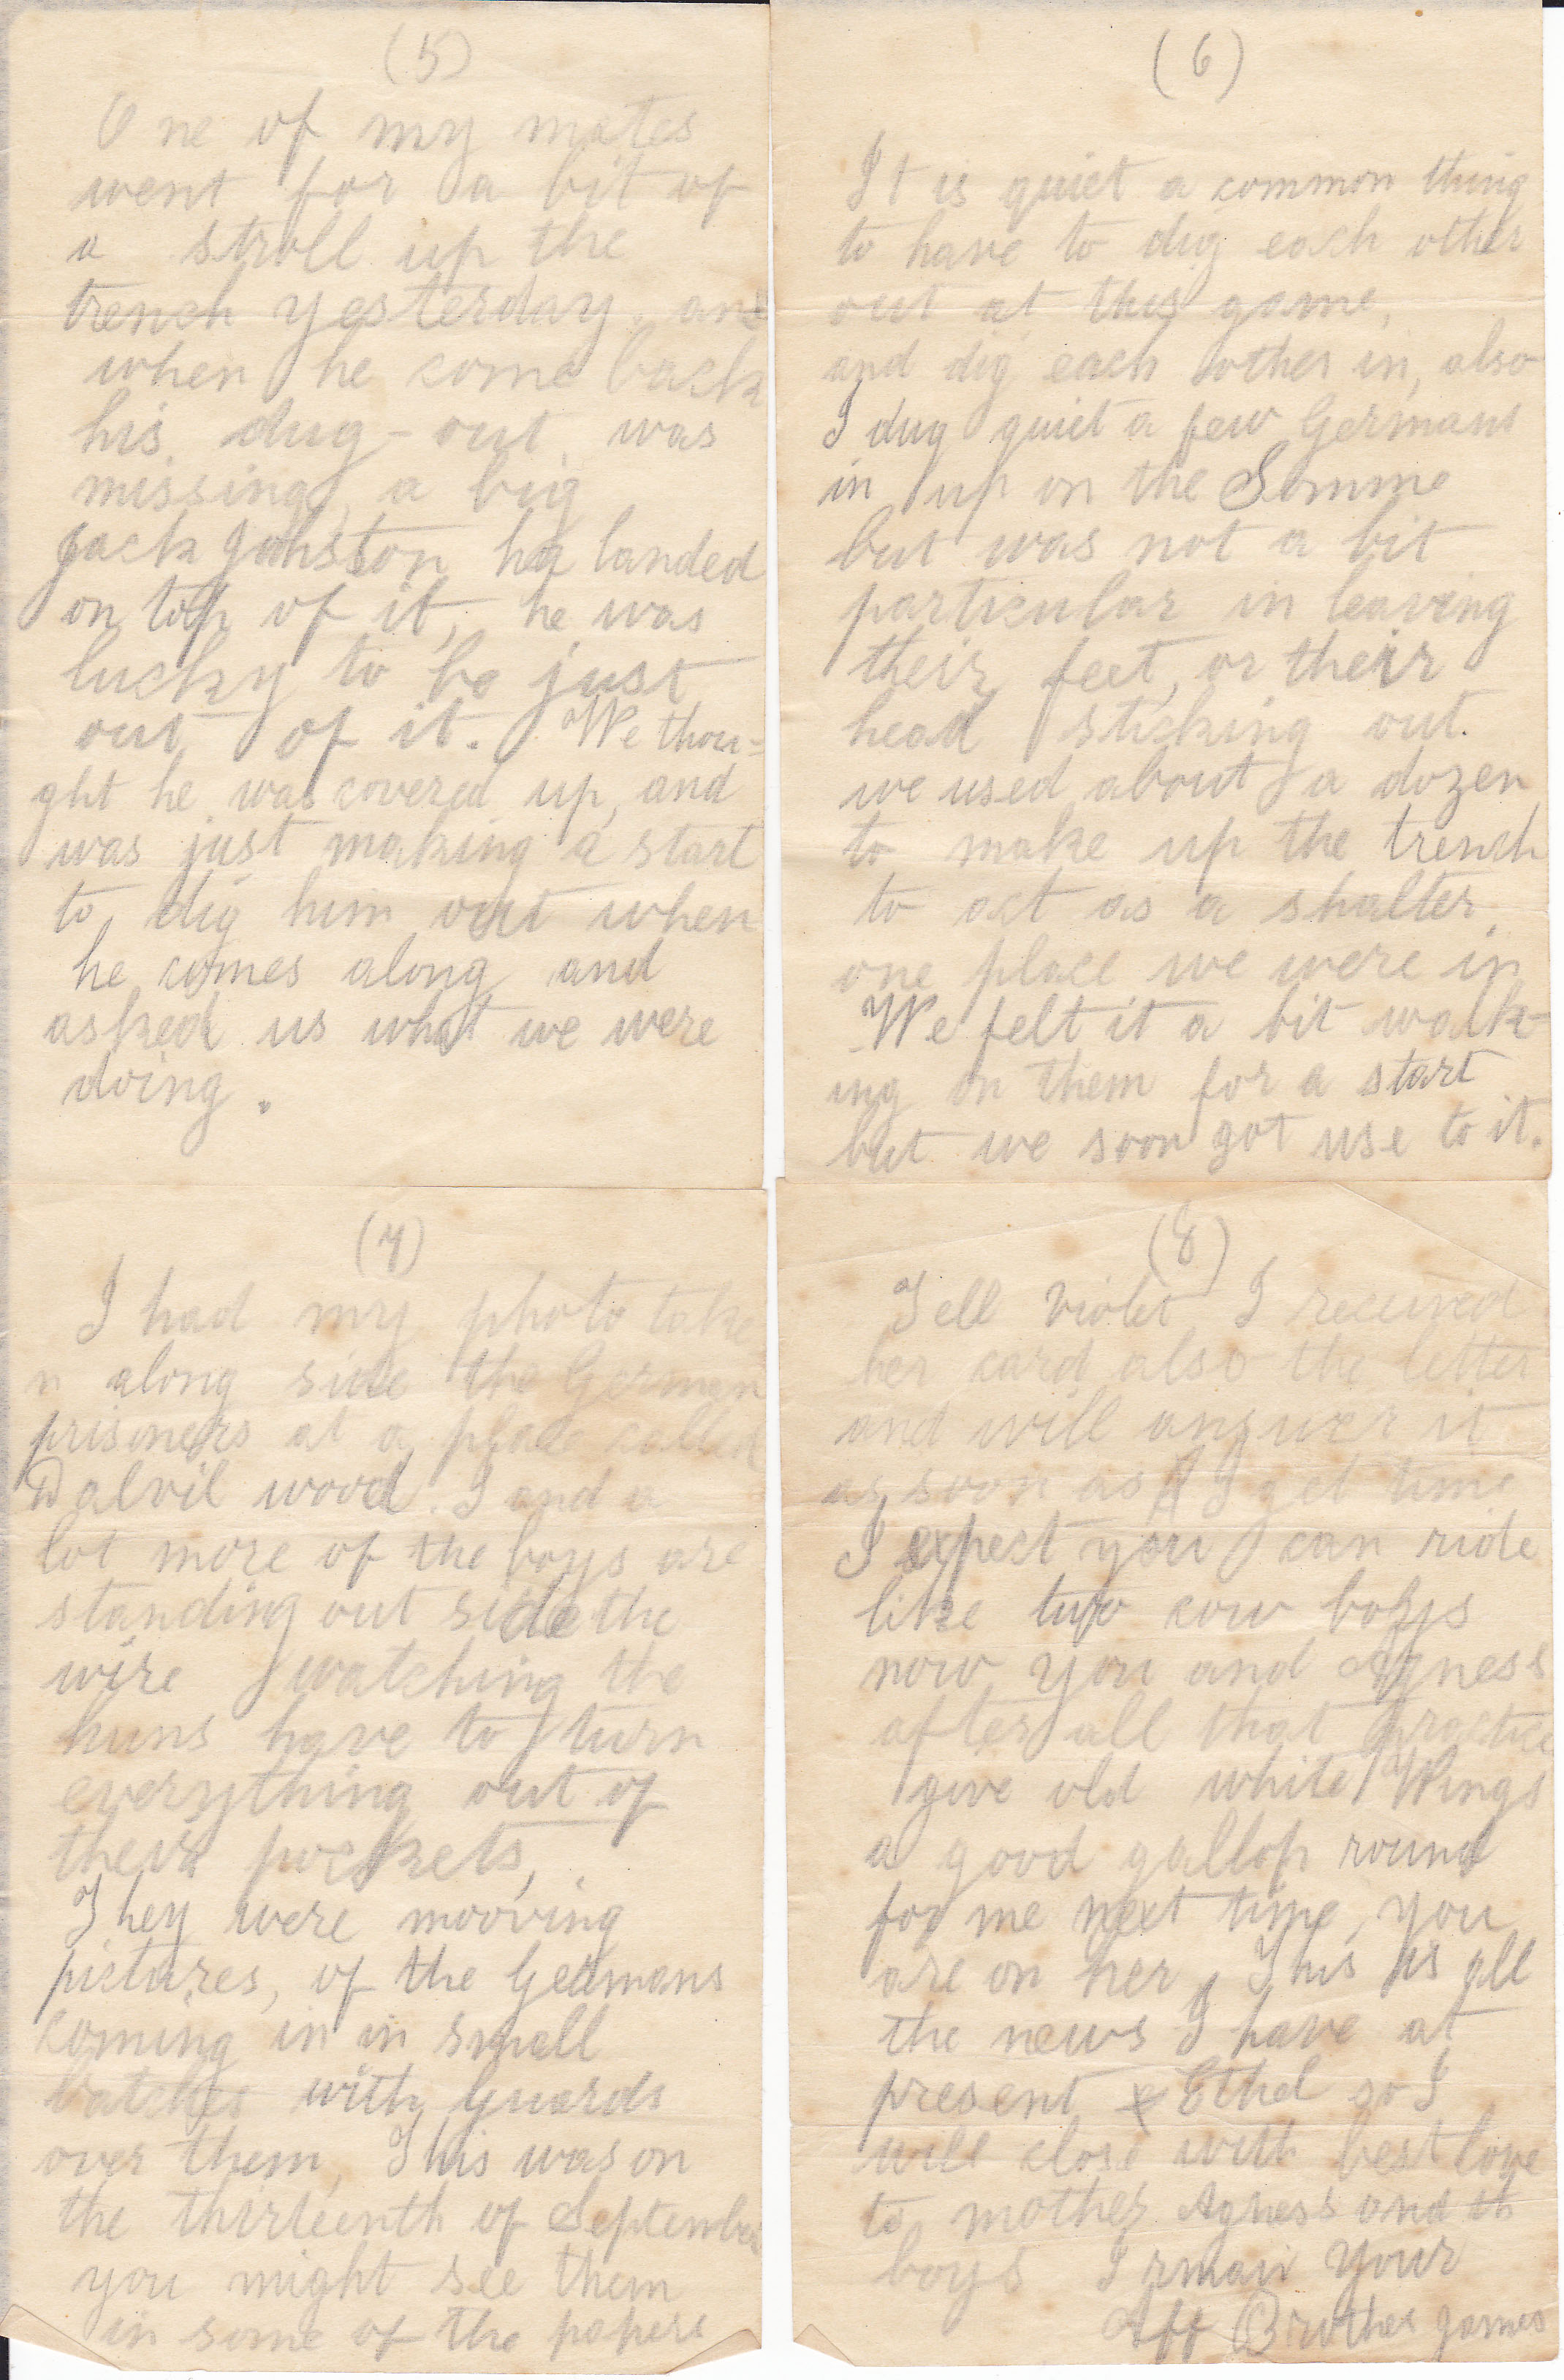 (5)
One of my mates
went for a bit of
a stroll up the
trench yesterday, and
when he come back
his dug-out was
missing, a big
Jack Johsston ha landed
on top of it, he was
lucky to be just
out of it. We thou=
ght he was covered up, and
was just making a start
to dig him out when
he comes along and
asked us what we were
doing.
(6)
It is quiet a common thing
to have to dug each other
out at this game,
and dig each other in, also
I dug quiet a few Germans
in up on the Somme
but was not a bit
particular in leaving
their feet, or their
head sticking out.
we used about a dozen
to make up the trench
to act as a shalter,
one place we were in
We felt it a bit walk-
ing on them for a start
but we soon got use to it.
(7)
I had my photo take
n along side the German
prisoners at a place called
Dalvil wood. I and a
lot more of the boys are
standing out side the
wire watching the
huns have to turn
everything out of
their pockets,
They were mooving
pictures, of the Germans
coming in in small
batches with guards
over them, This was on
the thirteenth of September
you might see them
in some of the papers
(8)
Tell Violet I received
her card also the letter
and will answer it
as soon as I get time
I expect you can ride
like two cow boys
now you and Agness
after all that practice
give old white Wings
a good gallop round
for me next time, you
are on her, This is all
the news I have at
present Ethel so I
will close with best love
to mother Agness and th
boys I rmain your
Aff Brother James